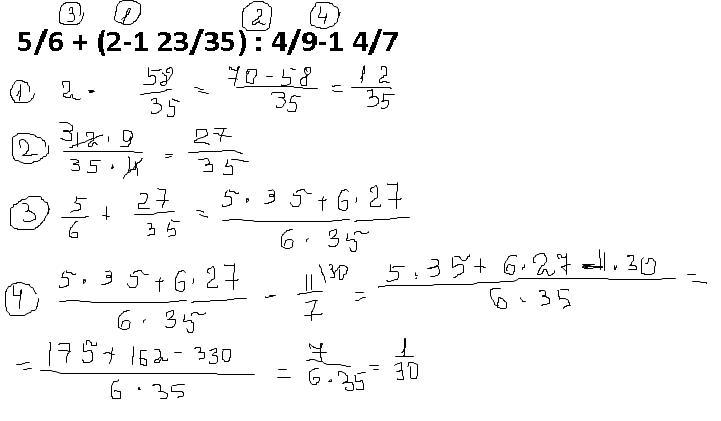 ③ ① ② ④
5/6 + (2-1 23/35) : 4/9-1 4/7
① 2 - 58/35 = (70-58)/35 = 12/35
② (3 12·9)/(35·4) = 27/35
③ 5/6 + 27/35 = (5·35+6·27)/(6·35)
④ (5·35+6·27)/(6·35) - 11\30/7 = (5·35+6·27-11·30)/(6·35) =
= (175+162-330)/(6·35) = 7/(6·35) = 1/30